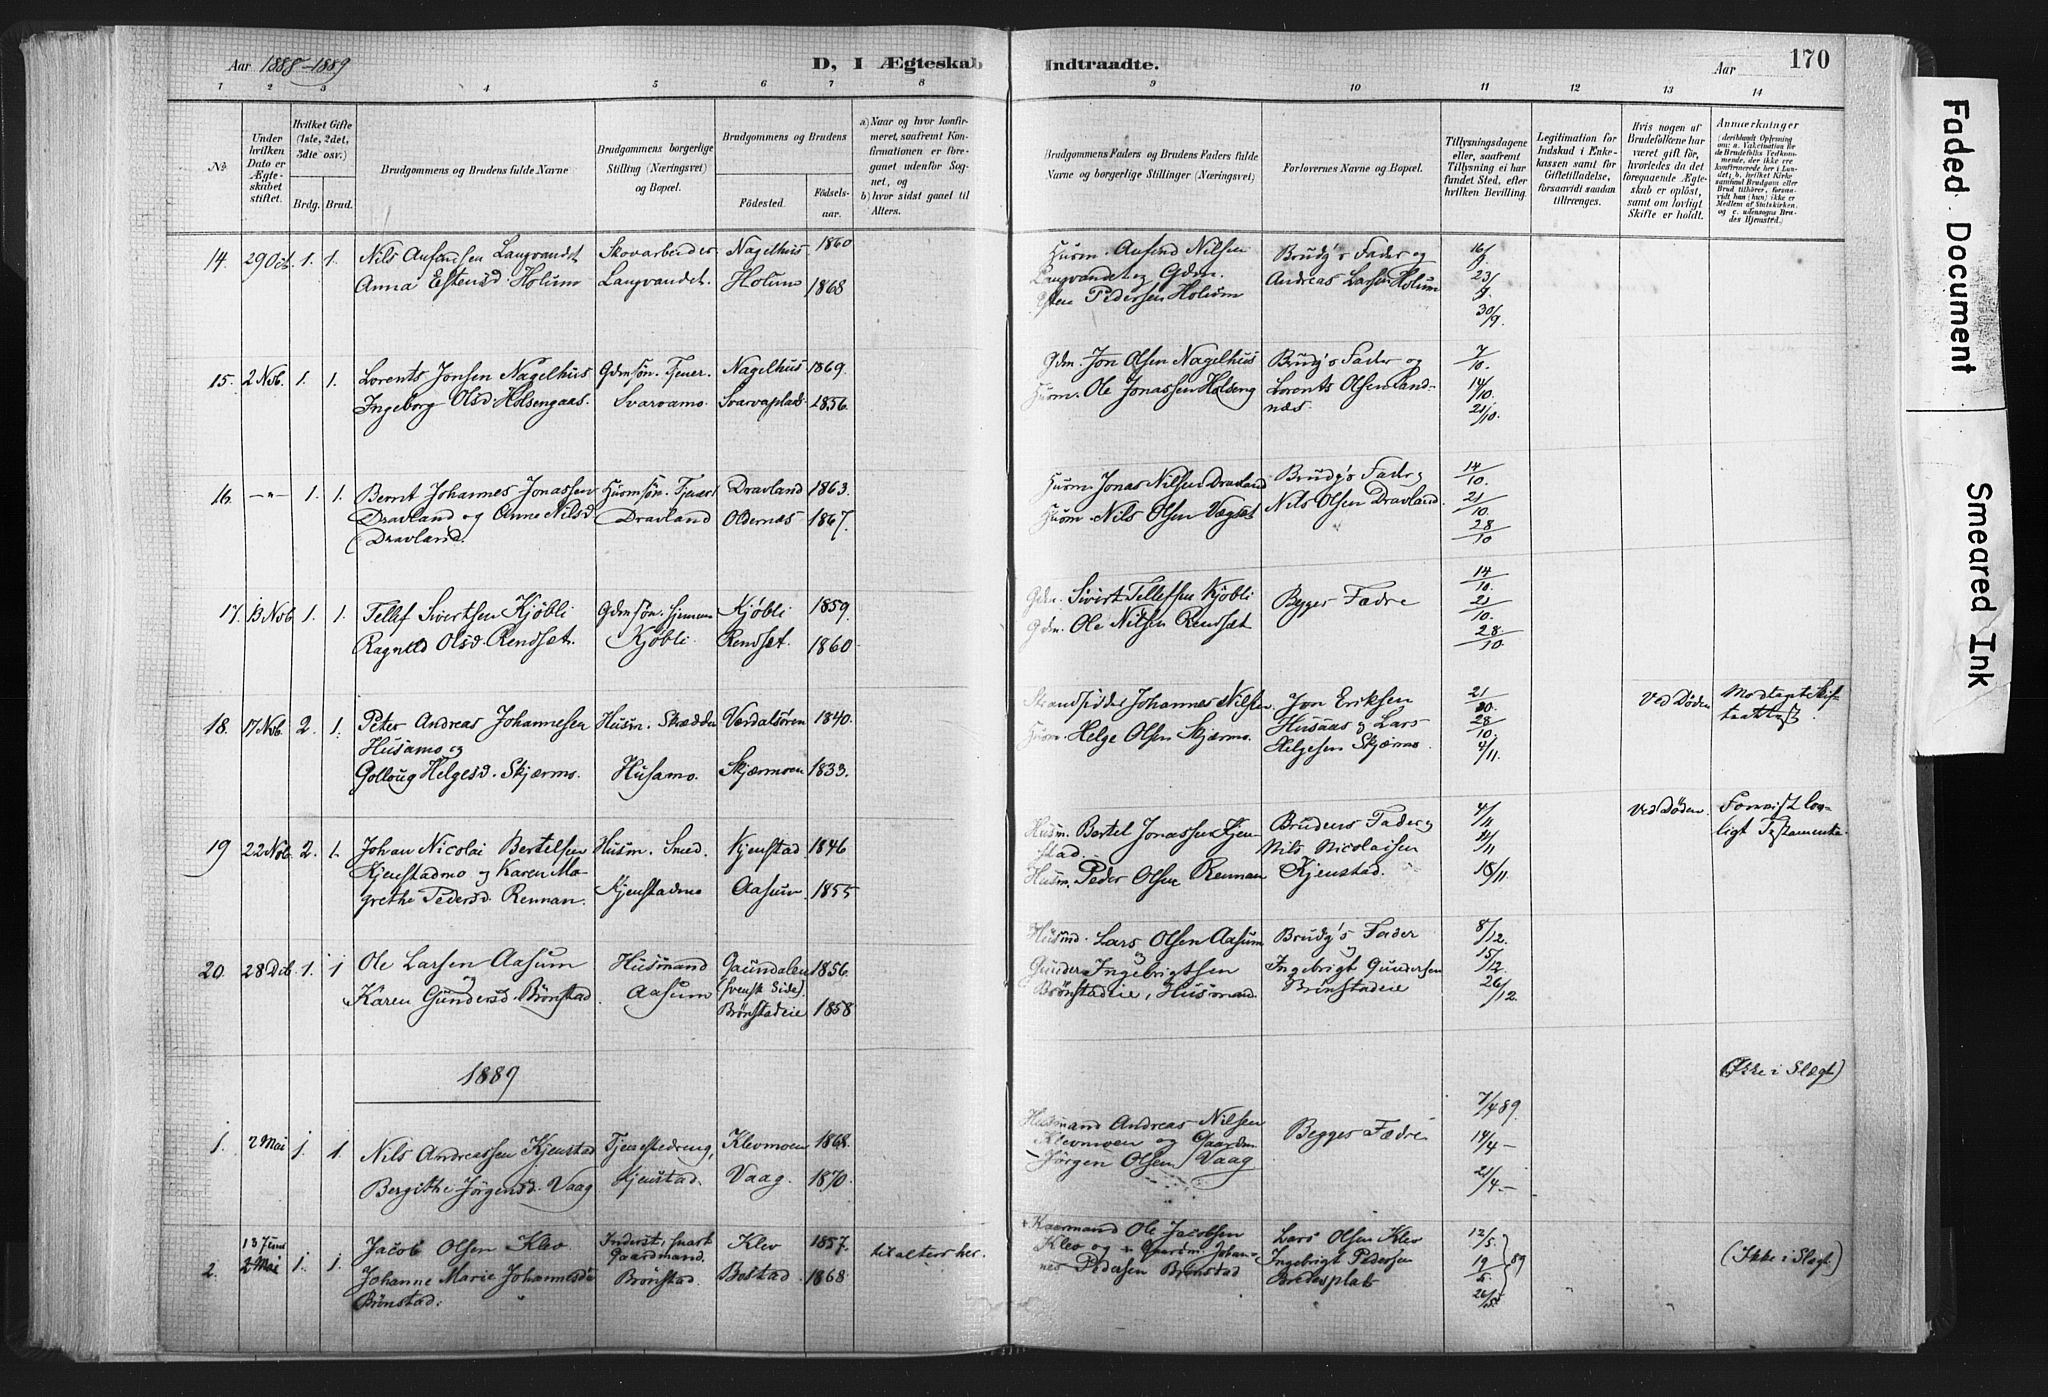 Aar 1888-1889
D, I Ægteskab Indtraadte.
Aar
170
1 2 3 4 5 6 7 8 9 10 11 12 13 14
№
Under hvilken Dato er Ægteskabet stiftet.
Hvilket Gifte (1ste, 2det, 3die osv.)
Brdg. Brud.
Brudgommens og Brudens fulde Navne
Brudgommens borgerlige Stilling (Næringsvei) og Bopæl.
Brudgommens og Brudens
Födested.
Födselsaar.
a) Naar og hvor konfirmeret, saafremt Konfirmationen er foregaaet udenfor Sognet, og
b) hvor sidst gaaet til Alters.
Brudgommens Faders og Brudens Faders fulde Navne og borgerlige Stillinger (Næringsvei)
Forlovernes Navne og Bopæl.
Tillysningsdagene eller, saafremt Tillysning ei har fundet Sted, efter hvilken Bevilling.
Legitimation for Indskud i Enkekassen samt for Giftetilladelse, forsaavidt saadan tiltrænges.
Hvis nogen af Brudefolkene har været gift før, hvorledes da det foregaaende Ægteskab er oplöst, samt om lovligt Skifte er holdt.
Anmærkninger
14. 29 Oct. 1. 1.
Nils Anfinsen Langvandet
Anna Estensd. Holum
Skovarbeider
Langvandet.
Nagelhus 1860
Holum 1868
Husm. Anfind Nilsen
Langvandet og Gdm.
Esten Pedersen Holum
Brudg's Fader og
Andreas Larsen Holum
16/9
23/9.
30/9.
15. 2 Nob. 1. 1.
Lorents Jonsen Nagelhus
Ingeborg Olsd. Holsengaas.
Gdmsön. Tjener.
Svarvamo.
Nagelhus 1869.
Svarvaplads 1856.
Gdm. Jon Olsen Nagelhus
Husm. Ole Jonassen Holseng
Brudg's Fader og
Lorents Olsen Sandnæs.
7/10.
14/10.
21/10.
16. -"- 1. 1.
Bernt Johannes Jonassen
Dravland og Anne Nilsd.
Dravland.
Husmsön. Tjener
Dravland
Dravland 1863.
Oldernæs 1867.
Husm. Jonas Nilsen Dravland
Husm. Nils Olsen Vægset
Brudg's Fader og
Nils Olsen Dravland.
14/10.
21/10
28/10
17. 13 Nob. 1. 1.
Tellef Sivertsen Kjöbli
Ragnild Olsd. Rendsæt.
Gdmsön. hjemme
Kjöbli.
Kjöbli 1859.
Rendsæt. 1860.
Gdm. Sivert Tellefsen Kjöbli
Gdm. Ole Nilsen Rendsæt
Begges Fædre
14/10.
21/10.
28/10
18. 17 Nob. 2. 1.
Peter Andreas Johannesen
Husamo og
Golloug Helgesd. Skjærmo.
Husm. Skrædder
Husamo.
Værdalsören 1840.
Skjærmoen 1833.
Strandsidder Johannes Nilsen
Husm. Helge Olsen Skjærmo.
Jon Eriksen
Husaas og Lars
Helgesen Skjærmo.
21/10.
28/10.
4/11.
Ved Döden
Modtaget Skifteattest.
19 22 Nob. 2. 1.
Johan Nicolai Bertelsen
Kjenstadmo og Karen Margrethe Pedersd. Rennan.
Husm. Smed.
Kjenstadmo
Kjenstad 1846
Aasum 1855
Husm. Bertel Jonassen Kjenstad.
Husm. Peder Olsen Rennan
Brudens Fader og
Nils Nicolaisen
Kjenstad.
4/11
11/11
18/11.
Ved Döden.
Forevist lovligt Testamente.
20. 28 Deb. 1. 1
Ole Larsen Aasum
og
Karen Gundersd. Brönstad
Husmand
Aasum
Gaundalen 1856.
(svensk Side).
Brönstadeie 1858
Husmd. Lars Olsen Aasum
og
Gunder Ingebrigtsen
Brönstadeie, Husmand.
Brudg's Fader
og
Ingebrigt Gundersen
Brönstadeie
8/12.
15/12.
26/12.
1889
1. 2 Mai 1. 1.
Nils Andreassen Kjenstad
Bergithe Jörgensd. Vaag
Tjenestedreng,
Kjenstad.
Klevmoen 1868.
Vaag. 1870.
Husmand Andreas Nilsen
Klevmoen og Gaardm.
Jörgen Olsen Vaag
Begges Fædre
7/4 89.
14/4 -
21/4 -
(Ikke i Slægt)
2. 13 Juni
2 Mai 1. 1.
Jacob Olsen Klev
Johanne Marie Johannesd.
Brönstad.
Inderst, snart
Gaardmand.
Brönstad.
Klev 1857.
Bostad 1868.
til alters her.
+ Kaarmand Ole Jacobsen
Klev og + Gaardm. Johannes Pedersen Brönstad
Lars Olsen Klev
Ingebrigt Pedersen
Bredesplads
12/5.
19/5.
26/5.
89
(Ikke i Slægt.)
Faded Document
Smeared Ink